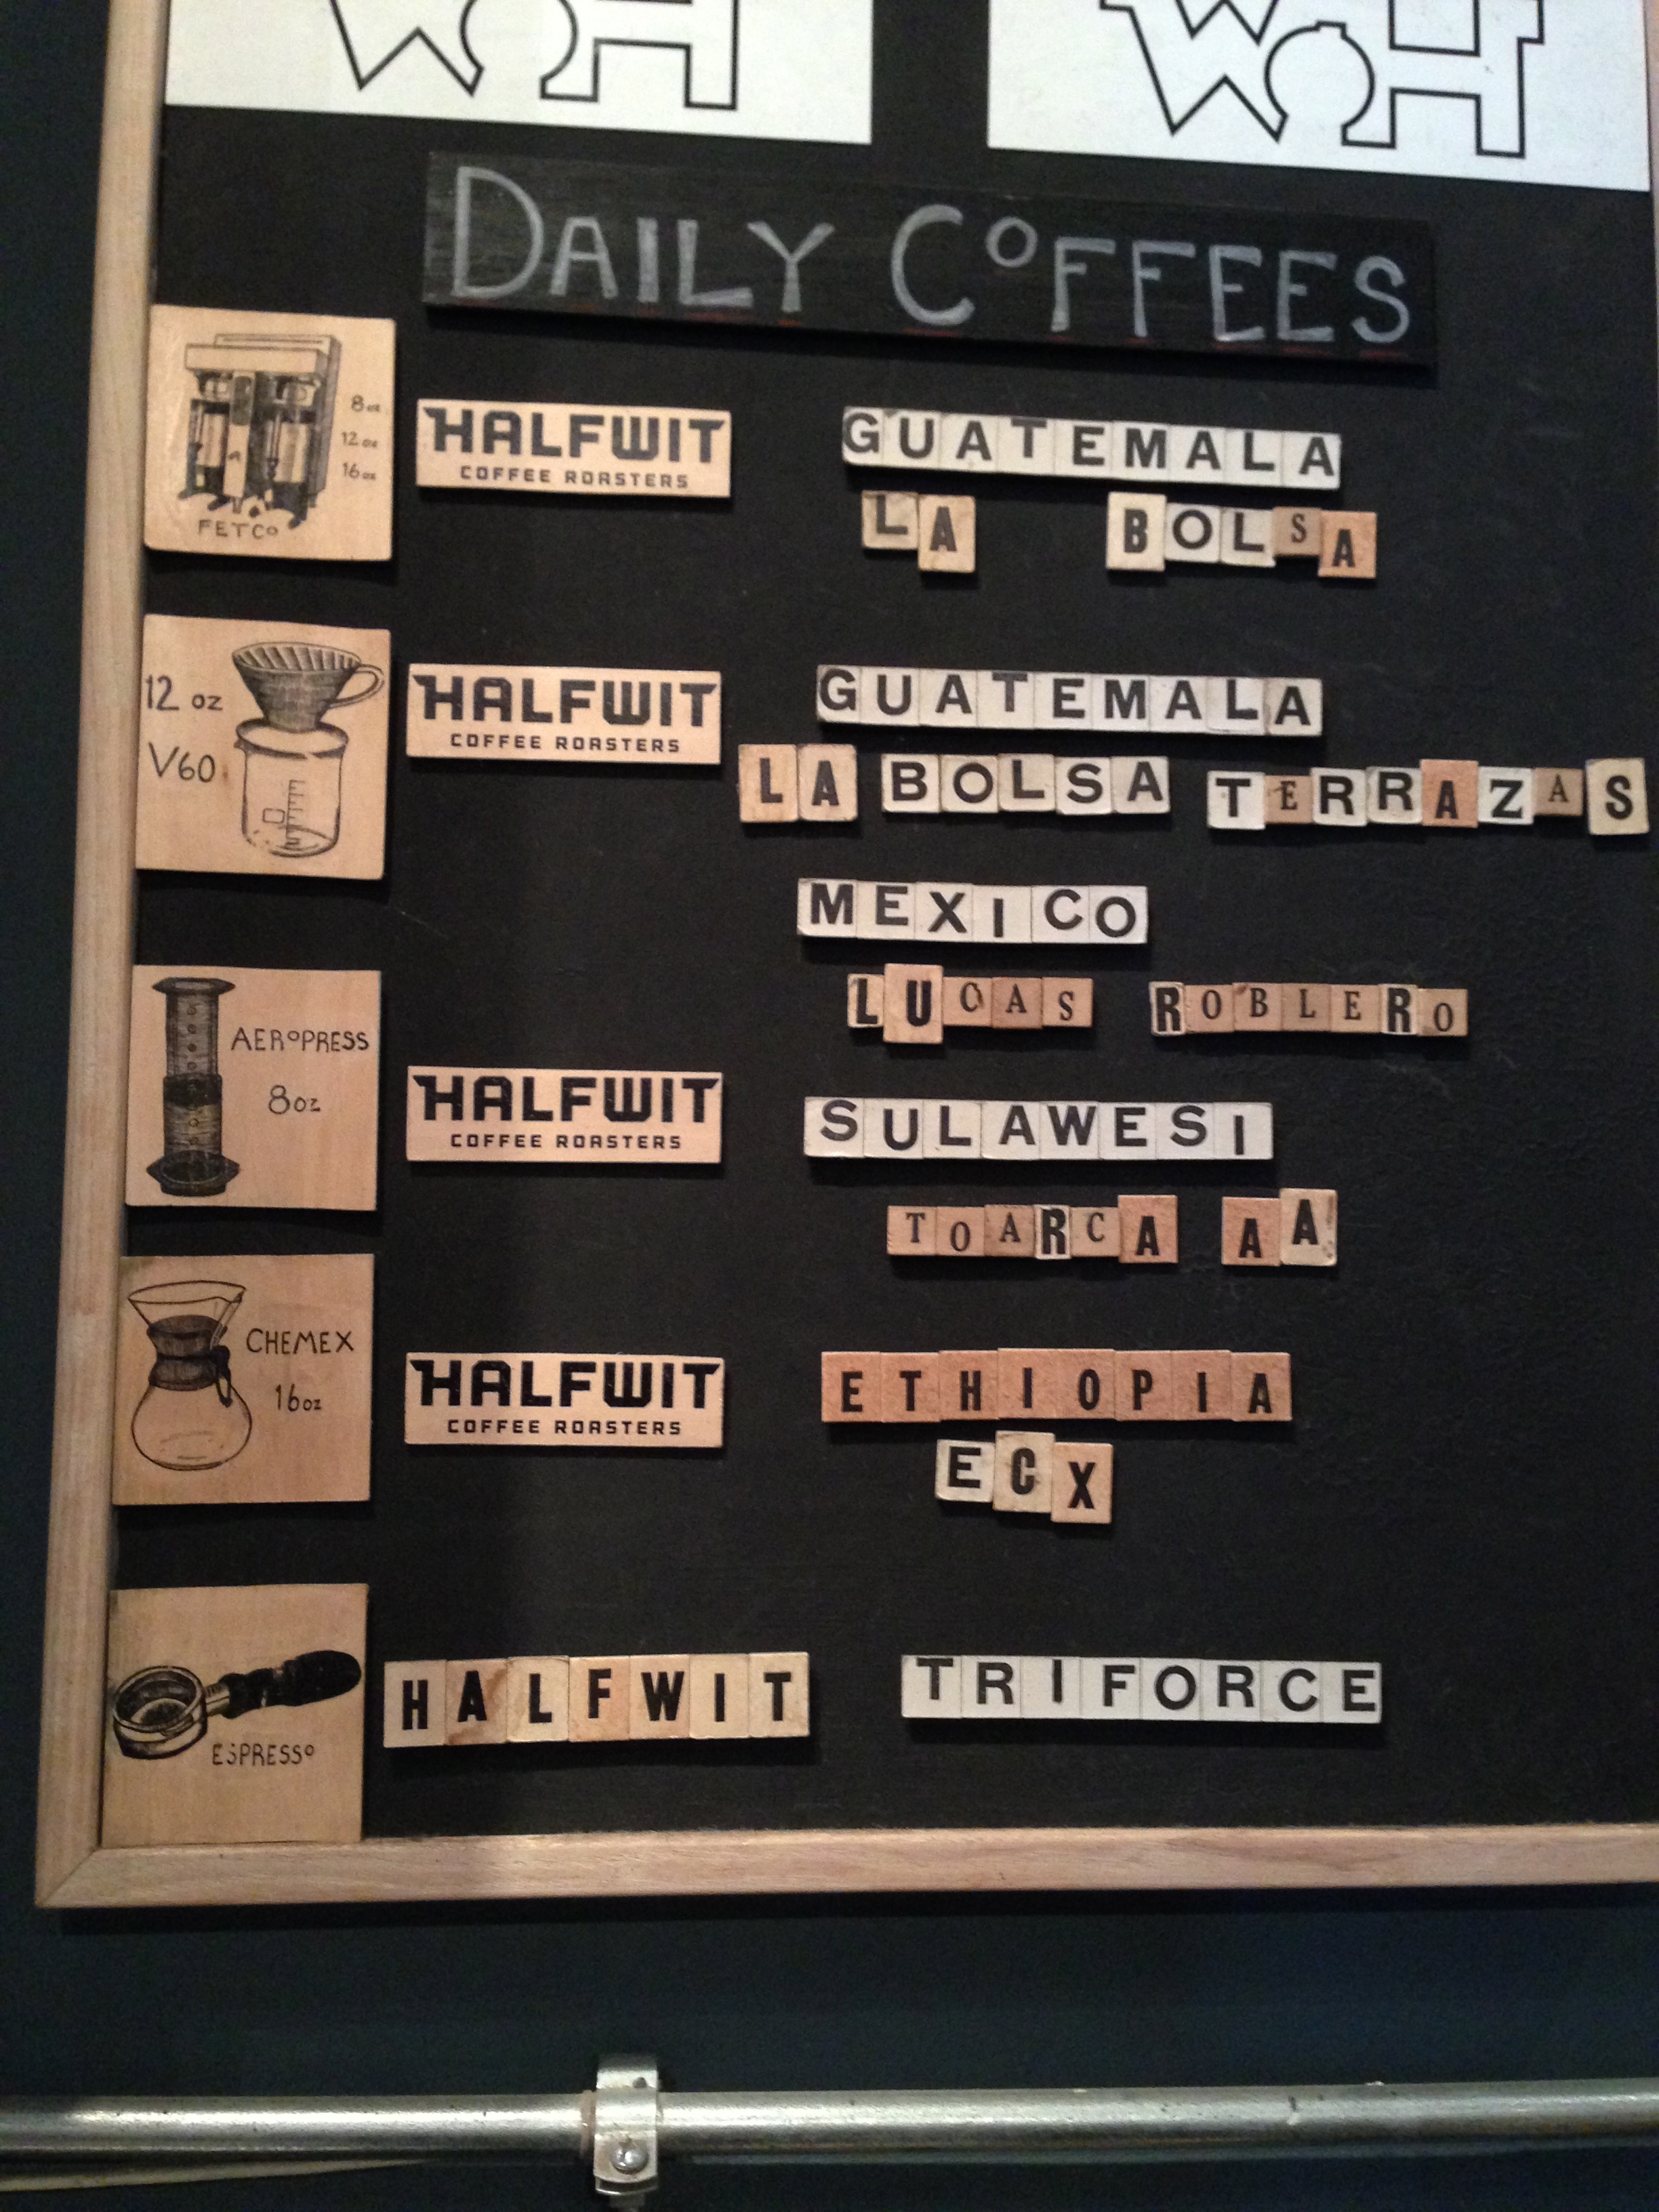 WOH WOH
DAILY COFFEES
8oz
12oz
16oz
FETCO
HALFWIT
COFFEE ROASTERS
GUATEMALA
LA BOLSA
12 oz
V60
HALFWIT
COFFEE ROASTERS
GUATEMALA
LA BOLSA TERRAZAS
MEXICO
LUCAS ROBLERO
AEROPRESS
8oz
HALFWIT
COFFEE ROASTERS
SULAWESI
TOARCA AA
CHEMEX
16oz
HALFWIT
COFFEE ROASTERS
ETHIOPIA
ECX
ESPRESSO
HALFWIT TRIFORCE